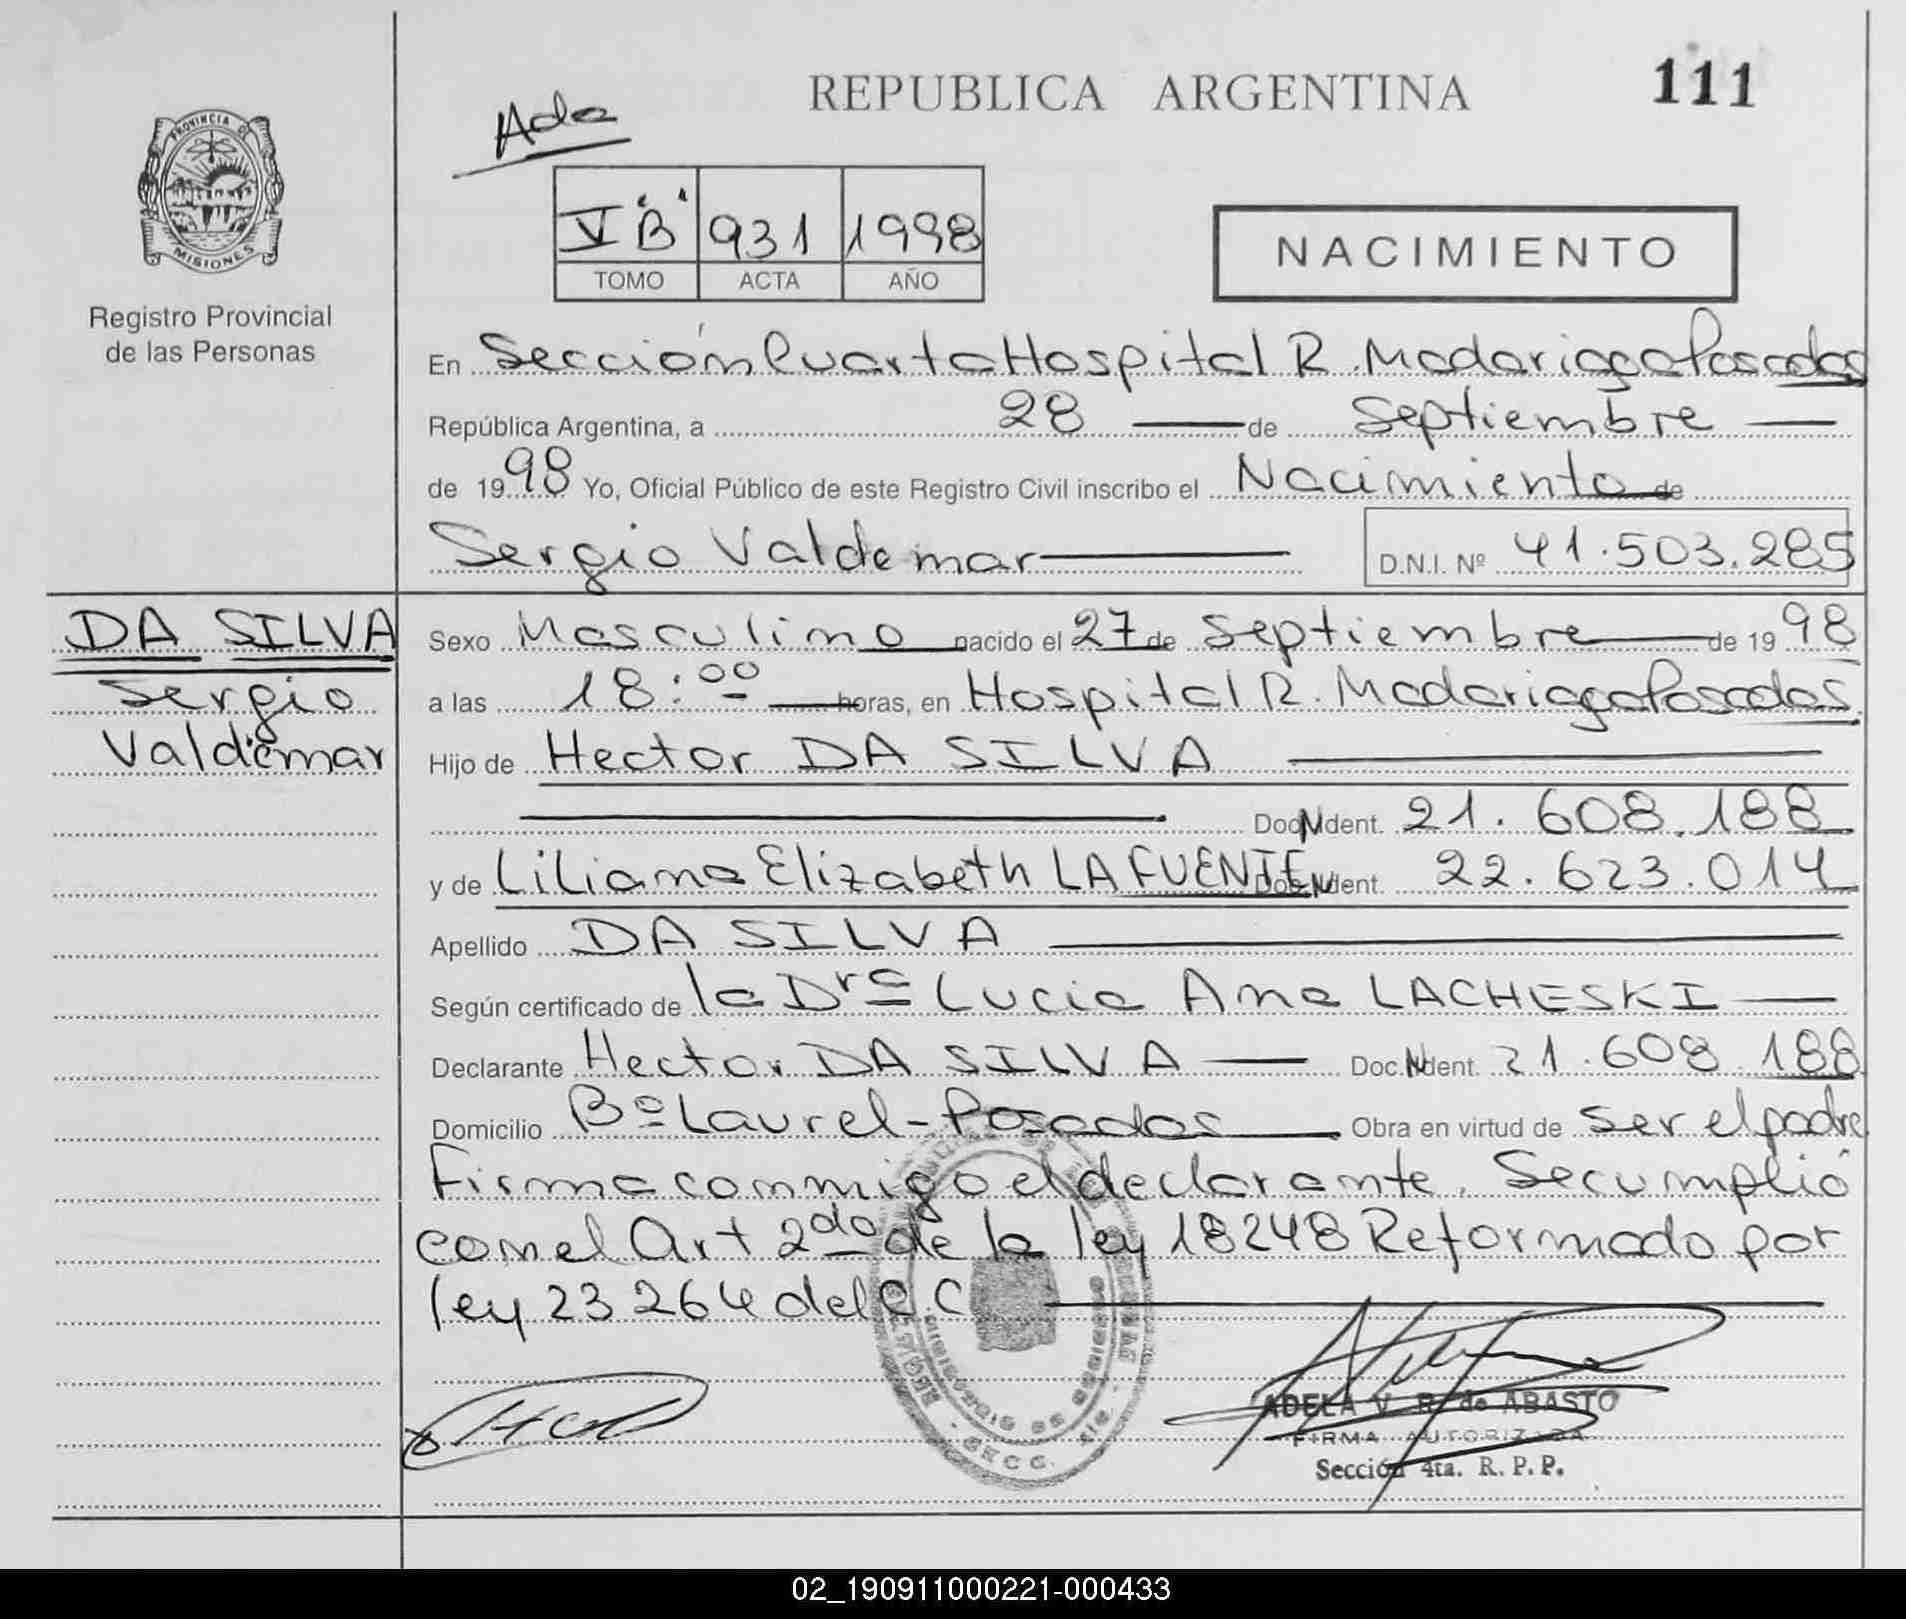 REPUBLICA ARGENTINA
111
Ada
V "B" 931 1998
TOMO ACTA AÑO
NACIMIENTO
PROVINCIA DE
MISIONES
Registro Provincial
de las Personas
En Sección Cuarta Hospital R. Madariaga Posadas
República Argentina, a 28 de Septiembre
de 1998 Yo, Oficial Público de este Registro Civil inscribo el Nacimiento de
Sergio Valdemar D.N.I. Nº 41.503.285
DA SILVA
Sergio
Valdemar
Sexo Masculino nacido el 27 de Septiembre de 1998
a las 18:00 horas, en Hospital R. Madariaga Posadas
Hijo de Hector DA SILVA
Doc. Ident. 21.608.188
y de Liliana Elizabeth LAFUENTE Doc. Ident. 22.623.014
Apellido DA SILVA
Según certificado de la Dra Lucia Ana LACHESKI
Declarante Hector DA SILVA Doc. Ident. 21.608.188
Domicilio Bº Laurel - Posadas Obra en virtud de ser el padre
Firma conmigo el declarante. Se cumplió
con el Art 2do de la ley 18248 Reformado por
ley 23264 del C.C
ADELA V. R. de ABASTO
FIRMA AUTORIZADA
Sección 4ta. R. P. P.
02_190911000221-000433